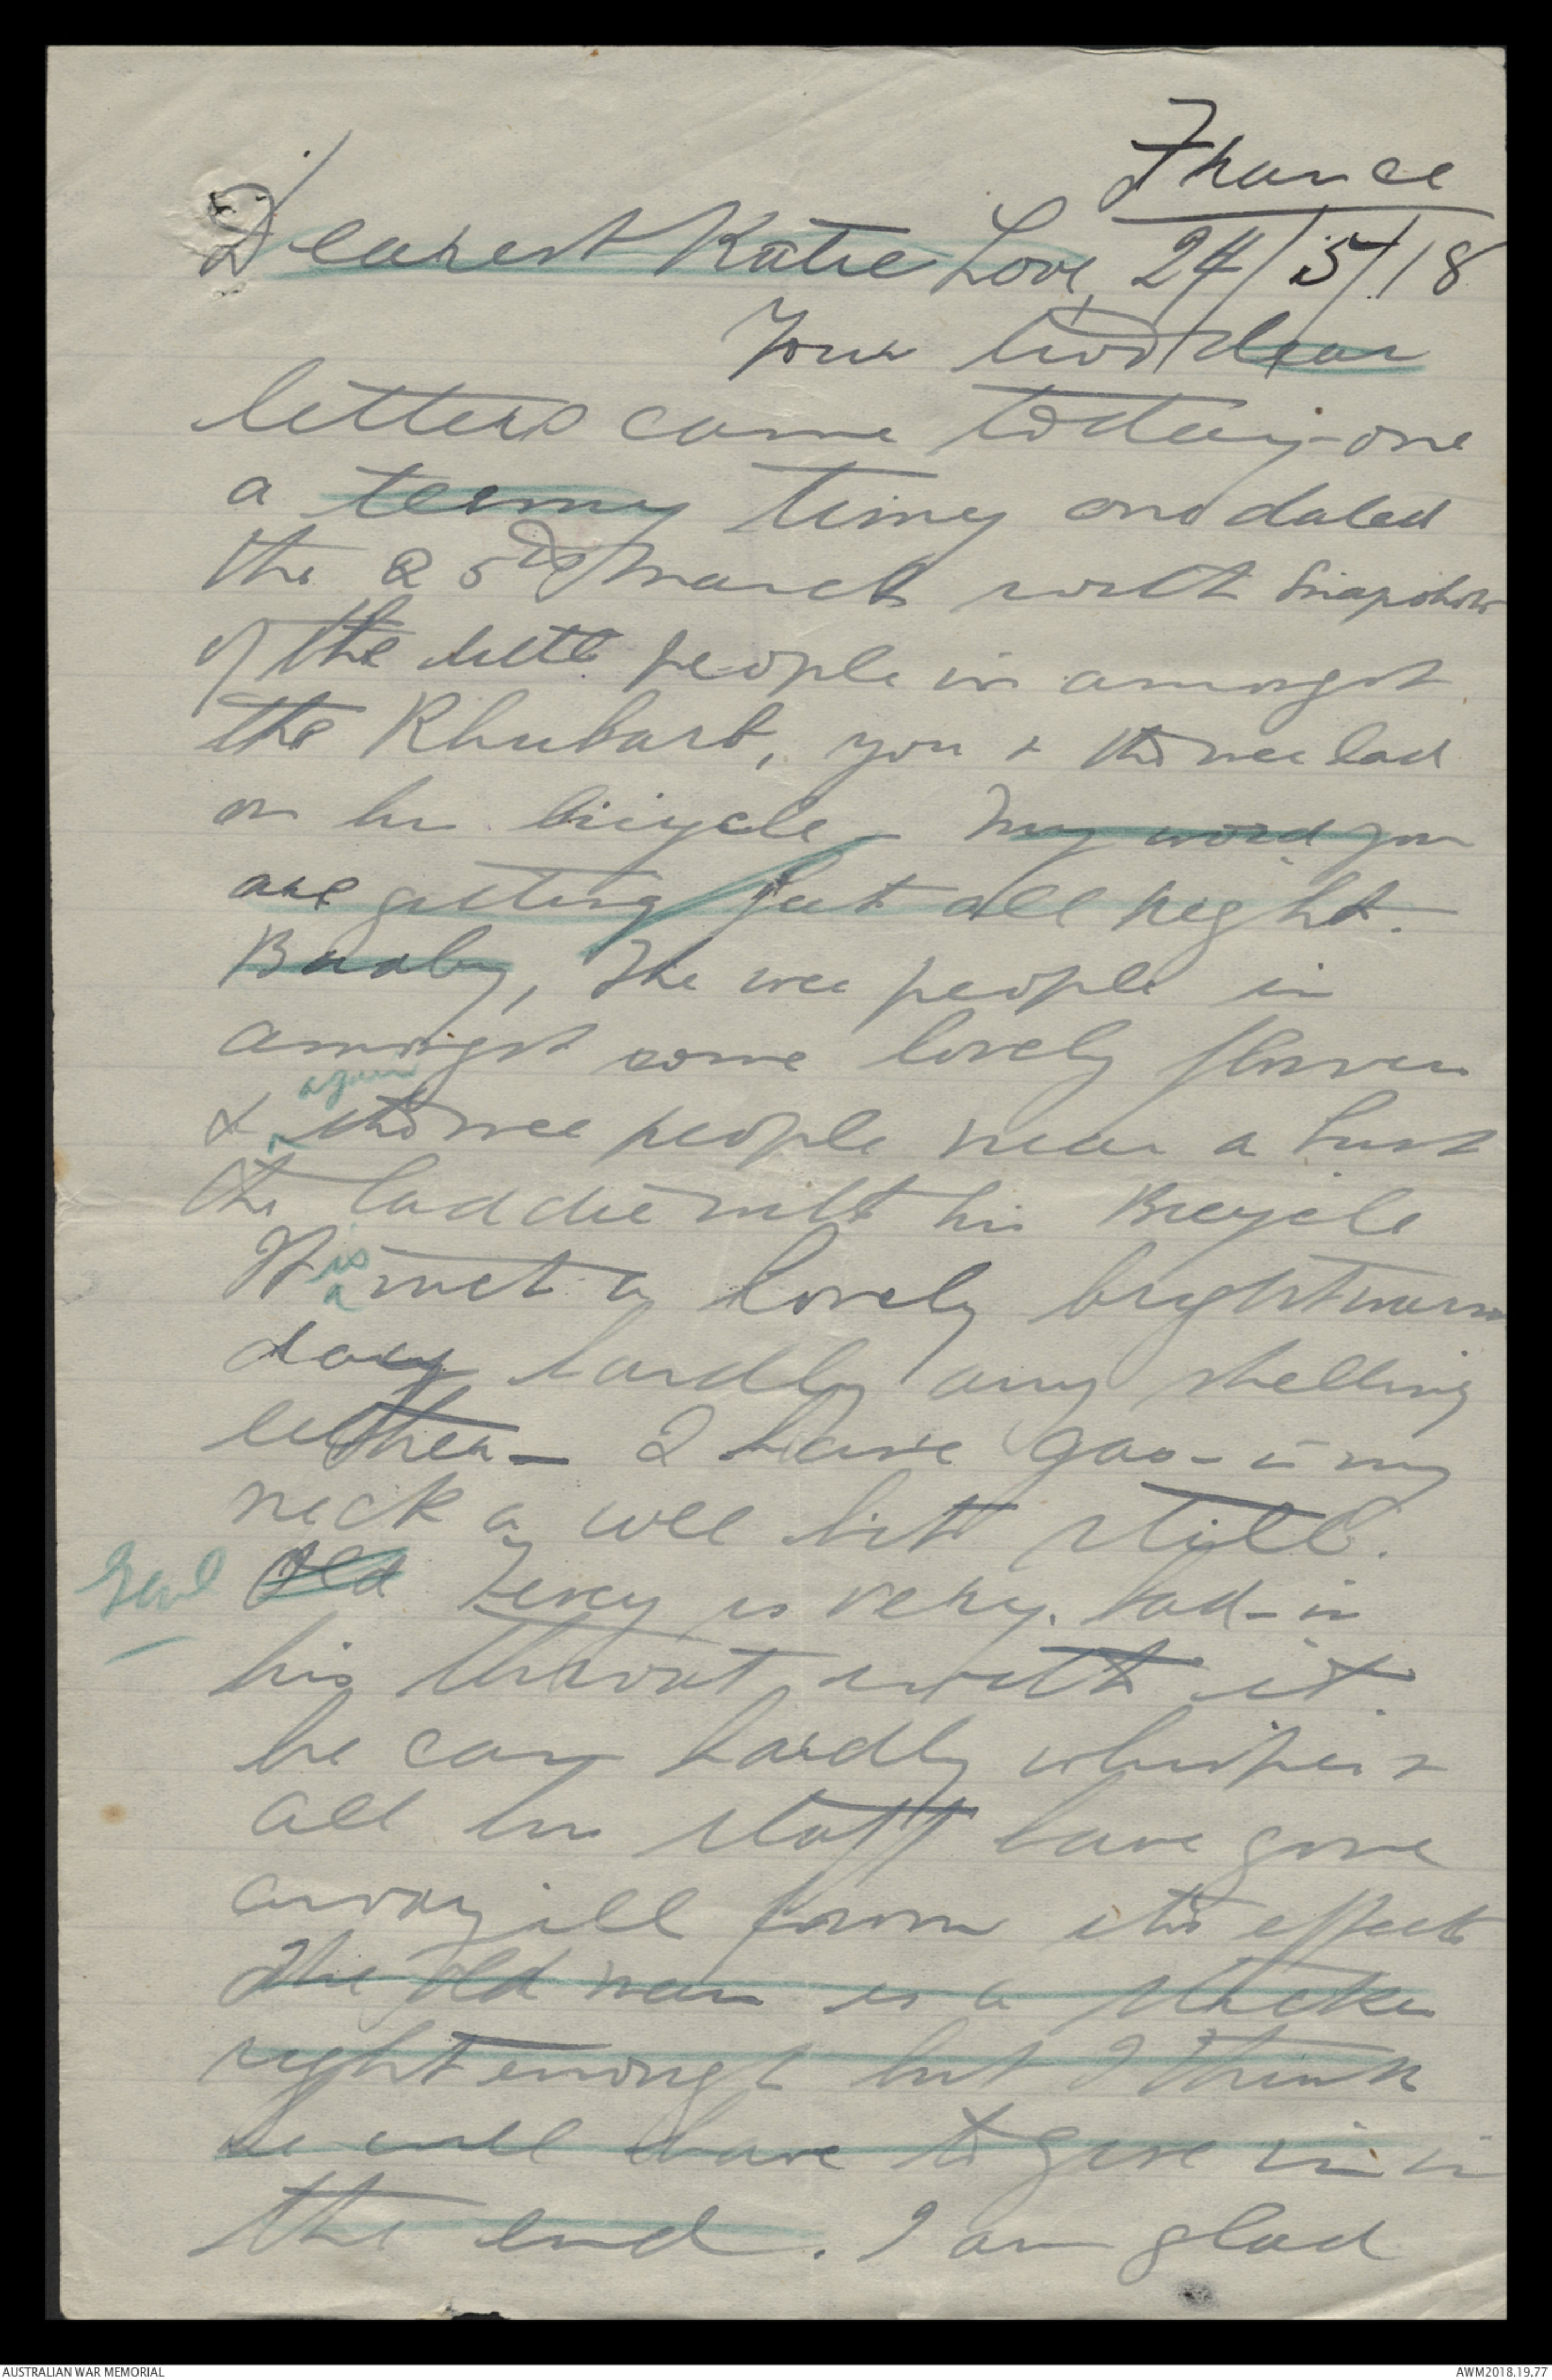 France
Dearest Katie Love, 24/5/18
Your two dear
letters came today - one
a teeny tiney one dated
the 25th March with Snapshots
of the little people in amongst
the Rhubarb, you & the wee lad
on his bicycle - My word you
are getting fat all right.
Baaby, The wee people in
amongst some lovely flowers
again
& the wee people near a bush
the laddie with his Bicycle
is
It a a lovely bright warm
day hardly any shelling
either - I have gas - in my
neck a wee bit still.
Genl Old is very bad - in
his throat with it
he can hardly whisper &
all his staff have gone
away ill from its effects
The old man is a sticker
right enough but I think
he will have to give in in
the end. I am glad
AUSTRALIAN WAR MEMORIAL
AWM2018.19.77